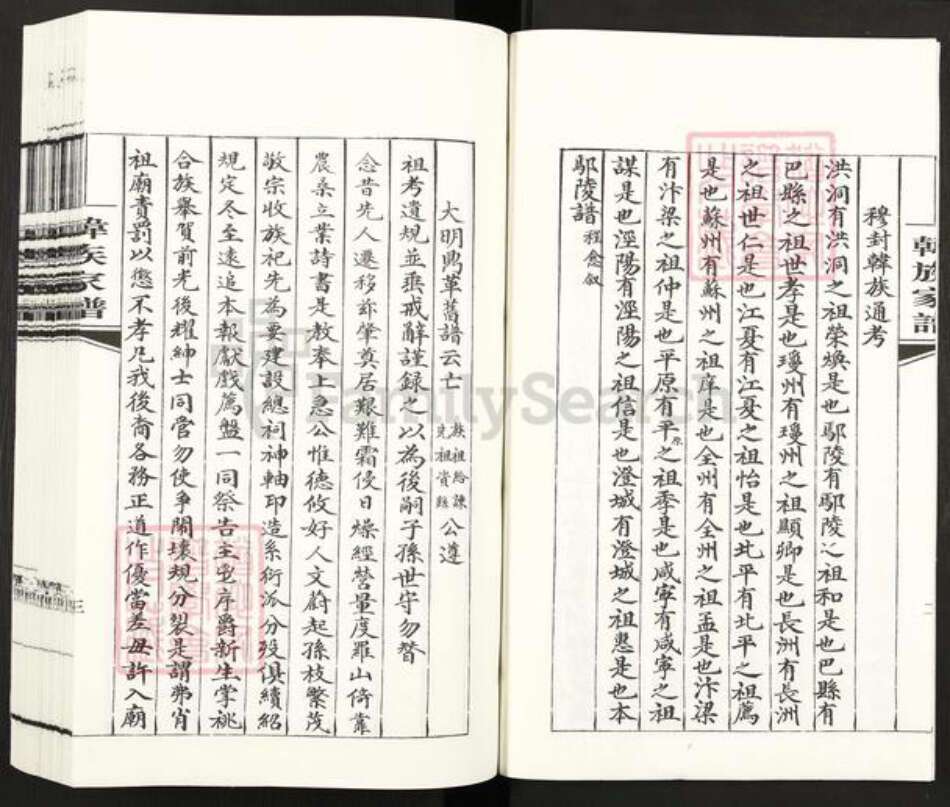 韓族家譜
穆封韓族通考
洪洞有洪洞之祖榮煥是也鄢陵有鄢陵之祖和是也巴縣有
巴縣之祖世孝是也瓊州有瓊州之祖顯卿是也長洲有長洲
之祖世仁是也江夏有江夏之祖怡是也北平有北平之祖薦
是也蘇州有蘇州之祖庠是也全州有全州之祖孟是也汴梁
有汴梁之祖仲是也平原有平原之祖季是也咸寧有咸寧之祖
謀是也涇陽有涇陽之祖信是也澄城有澄城之祖懇是也本
鄢陵譜 程愈叙
二
大明鼎革舊譜云亡 族祖給諫 先祖資縣 公遵
祖考遺規並垂戒辭謹録之以為後嗣子孫世守勿替
念昔先人遷移茲肇奠居艱難霜侵日燥經營量度羅山倚靠
農桑立業詩書是教奉上急公惟德攸好人文蔚起孫枝繁茂
敬宗收族祀先為要建設總祠神軸印造系衍派分發俱續紹
規定冬至遠追本報獻戲篤盤一同祭告主鬯序爵新生掌祧
合族舉賀前光後耀紳士同嘗勿使爭鬧壞規分裂是謂弗肖
祖廟責罰以懲不孝凡我後裔各務正道作優當差毋許入廟
韓族家譜
三
FamilySearch